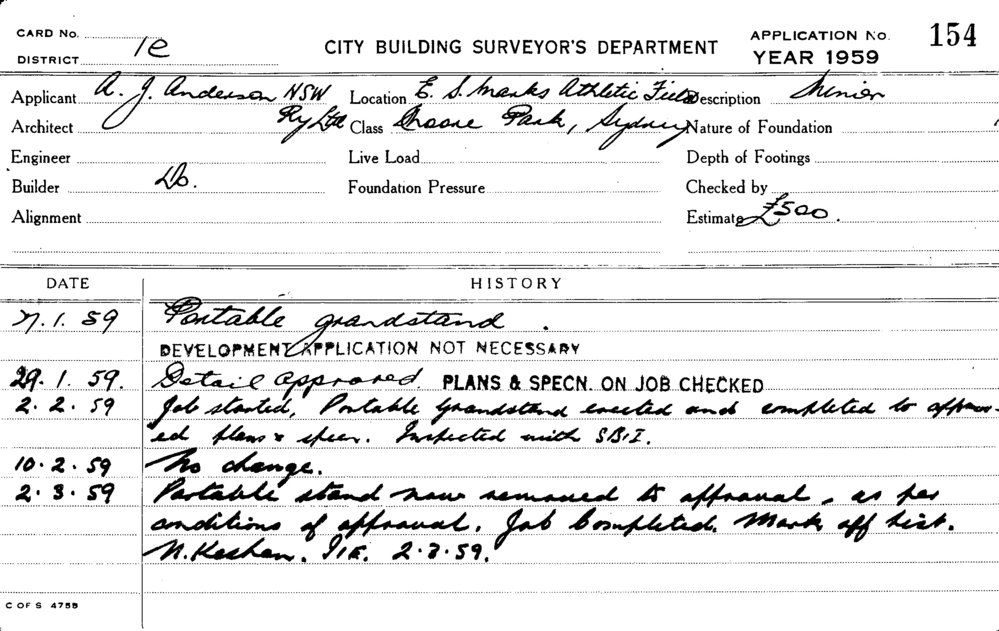 CARD No.
DISTRICT 1E
CITY BUILDING SURVEYOR'S DEPARTMENT
APPLICATION No. 154
YEAR 1959
Applicant A. J. Anderson NSW Location E. S. Marks Athletic Field Description Minior
Architect Pty Ltd Class Moore Park, Sydney Nature of Foundation
Engineer Live Load Depth of Footings
Builder Do. Foundation Pressure Checked by
Alignment Estimate £500.
DATE HISTORY
7.1.59 Portable grandstand.
DEVELOPMENT APPLICATION NOT NECESSARY
29.1.59. Detail approved PLANS & SPECN. ON JOB CHECKED
2.2.59 Job started, Portable Grandstand erected and completed to approv-
ed plans & specn. Inspected with S.B.I.
10.2.59 No change.
2.3.59 Portable stand now removed to approval, as per
conditions of approval. Job Completed. Mark off list.
N. Keshan. 2.3.59.
C OF S 475B